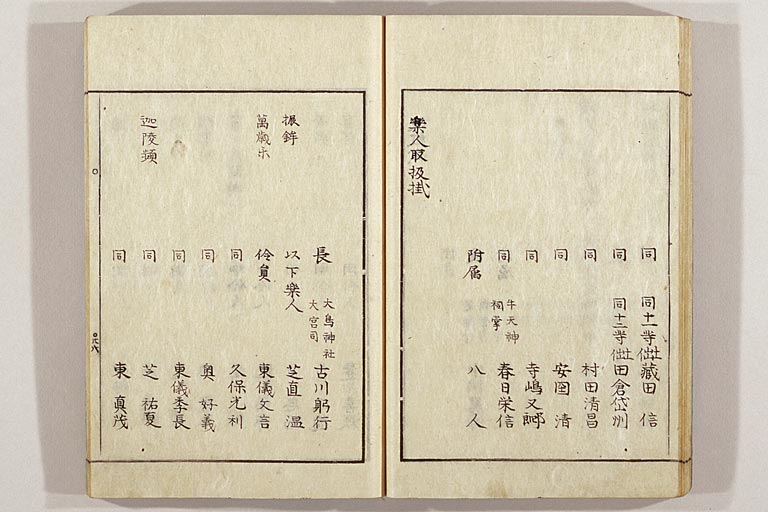 同 同十一等仕 藏田 信
同 同十二等仕 田倉岱州
同 村田清昌
同 安岡 清
同 寺嶋又郎
同 牛天神祠掌 春日栄信
附属 八人
樂人取扱掛
長 大鳥神社大宮司 古川躬行
振鉾 以下楽人 芝直温
萬歳楽 伶員 東儀文言
同 久保光利
同 奥 好義
同 東儀季長
迦陵頻 同 芝 祐夏
同 東 真茂